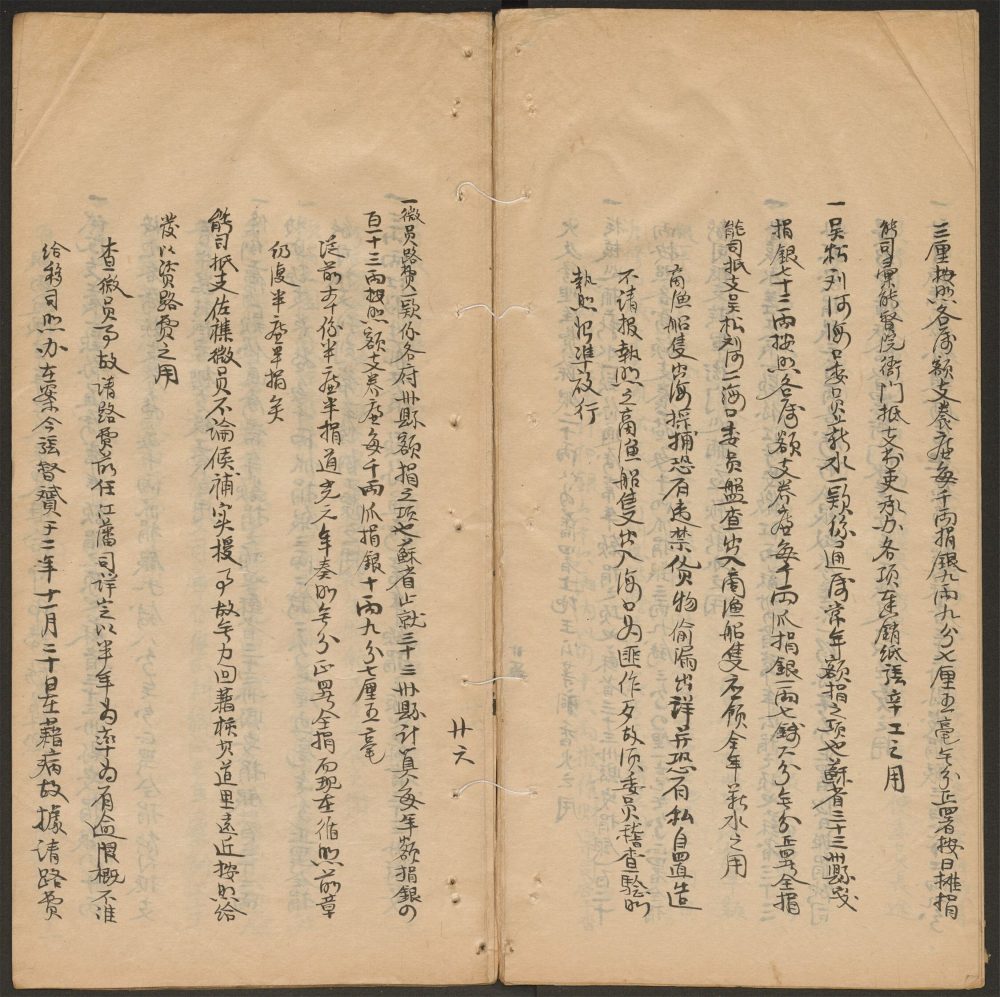 一三厘按照各属額支養庶每千両捐銀九両九分七厘五毫無分正署按日攤捐
能司彙能賢院衙門抵支书吏承办各項奏銷紙張辛工之用
一吴松刘河海口委員薪水一款係通属常年額捐之項也蘇省三十三州縣
捐銀七十三両按照各属額支养庶每千両派捐銀一両七錢六分無分正署全捐
能司抵支吴松刘河二海口委員盤查出入商渔船隻不領全年薪水之用
商渔船隻出海採捕恐有走禁貨物偷漏出洋并恐有私自置造
不请报執照之商渔船隻出入海口为匪作歹故须委員稽查验明
執照始準放行
廿六
一微員路费一款係各府州縣額捐之項也蘇省止就三十三州縣計算每年額捐銀
百十三両按照額支养庶每千両派捐銀十両九分七厘五毫
從前本係半庶半捐道光元年奏明無分正署全捐而現在循照前章
仍復半庶半捐矣
能司抵支佐襍微員不論候補实授事故無力回藉核其道里遠近按照給
發以资路費之用
查微員事故请路费前任江藩司详定以半年为率如有逾限概不准
给移司照办在案今張督赞于二年十一月二十日在藉病故據请路费